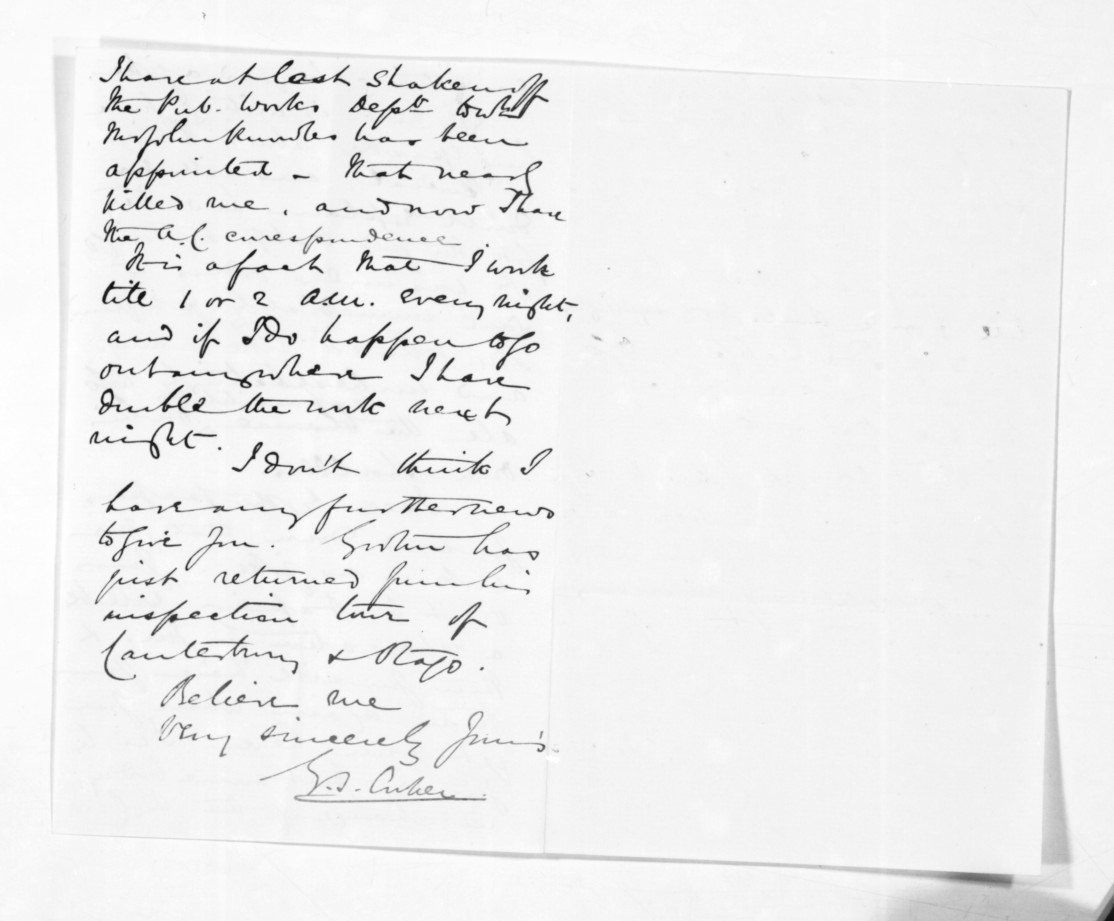 I have at last shaken off
the Pub. Works Deptt to wh
Mr John Knowles has been
appointed - That nearly
killed me, and now I have
the A.C. correspondence.
It is a fact that I work
till 1 or 2 a.m. every night,
and if I do happen to go
out anywhere I have
double the work next
night.
I don't think I
have any further news
to give you. has
just returned from his
inspection tour of
Canterbury & Otago.
Believe me
Very sincerely Yours
G.S. Cooper